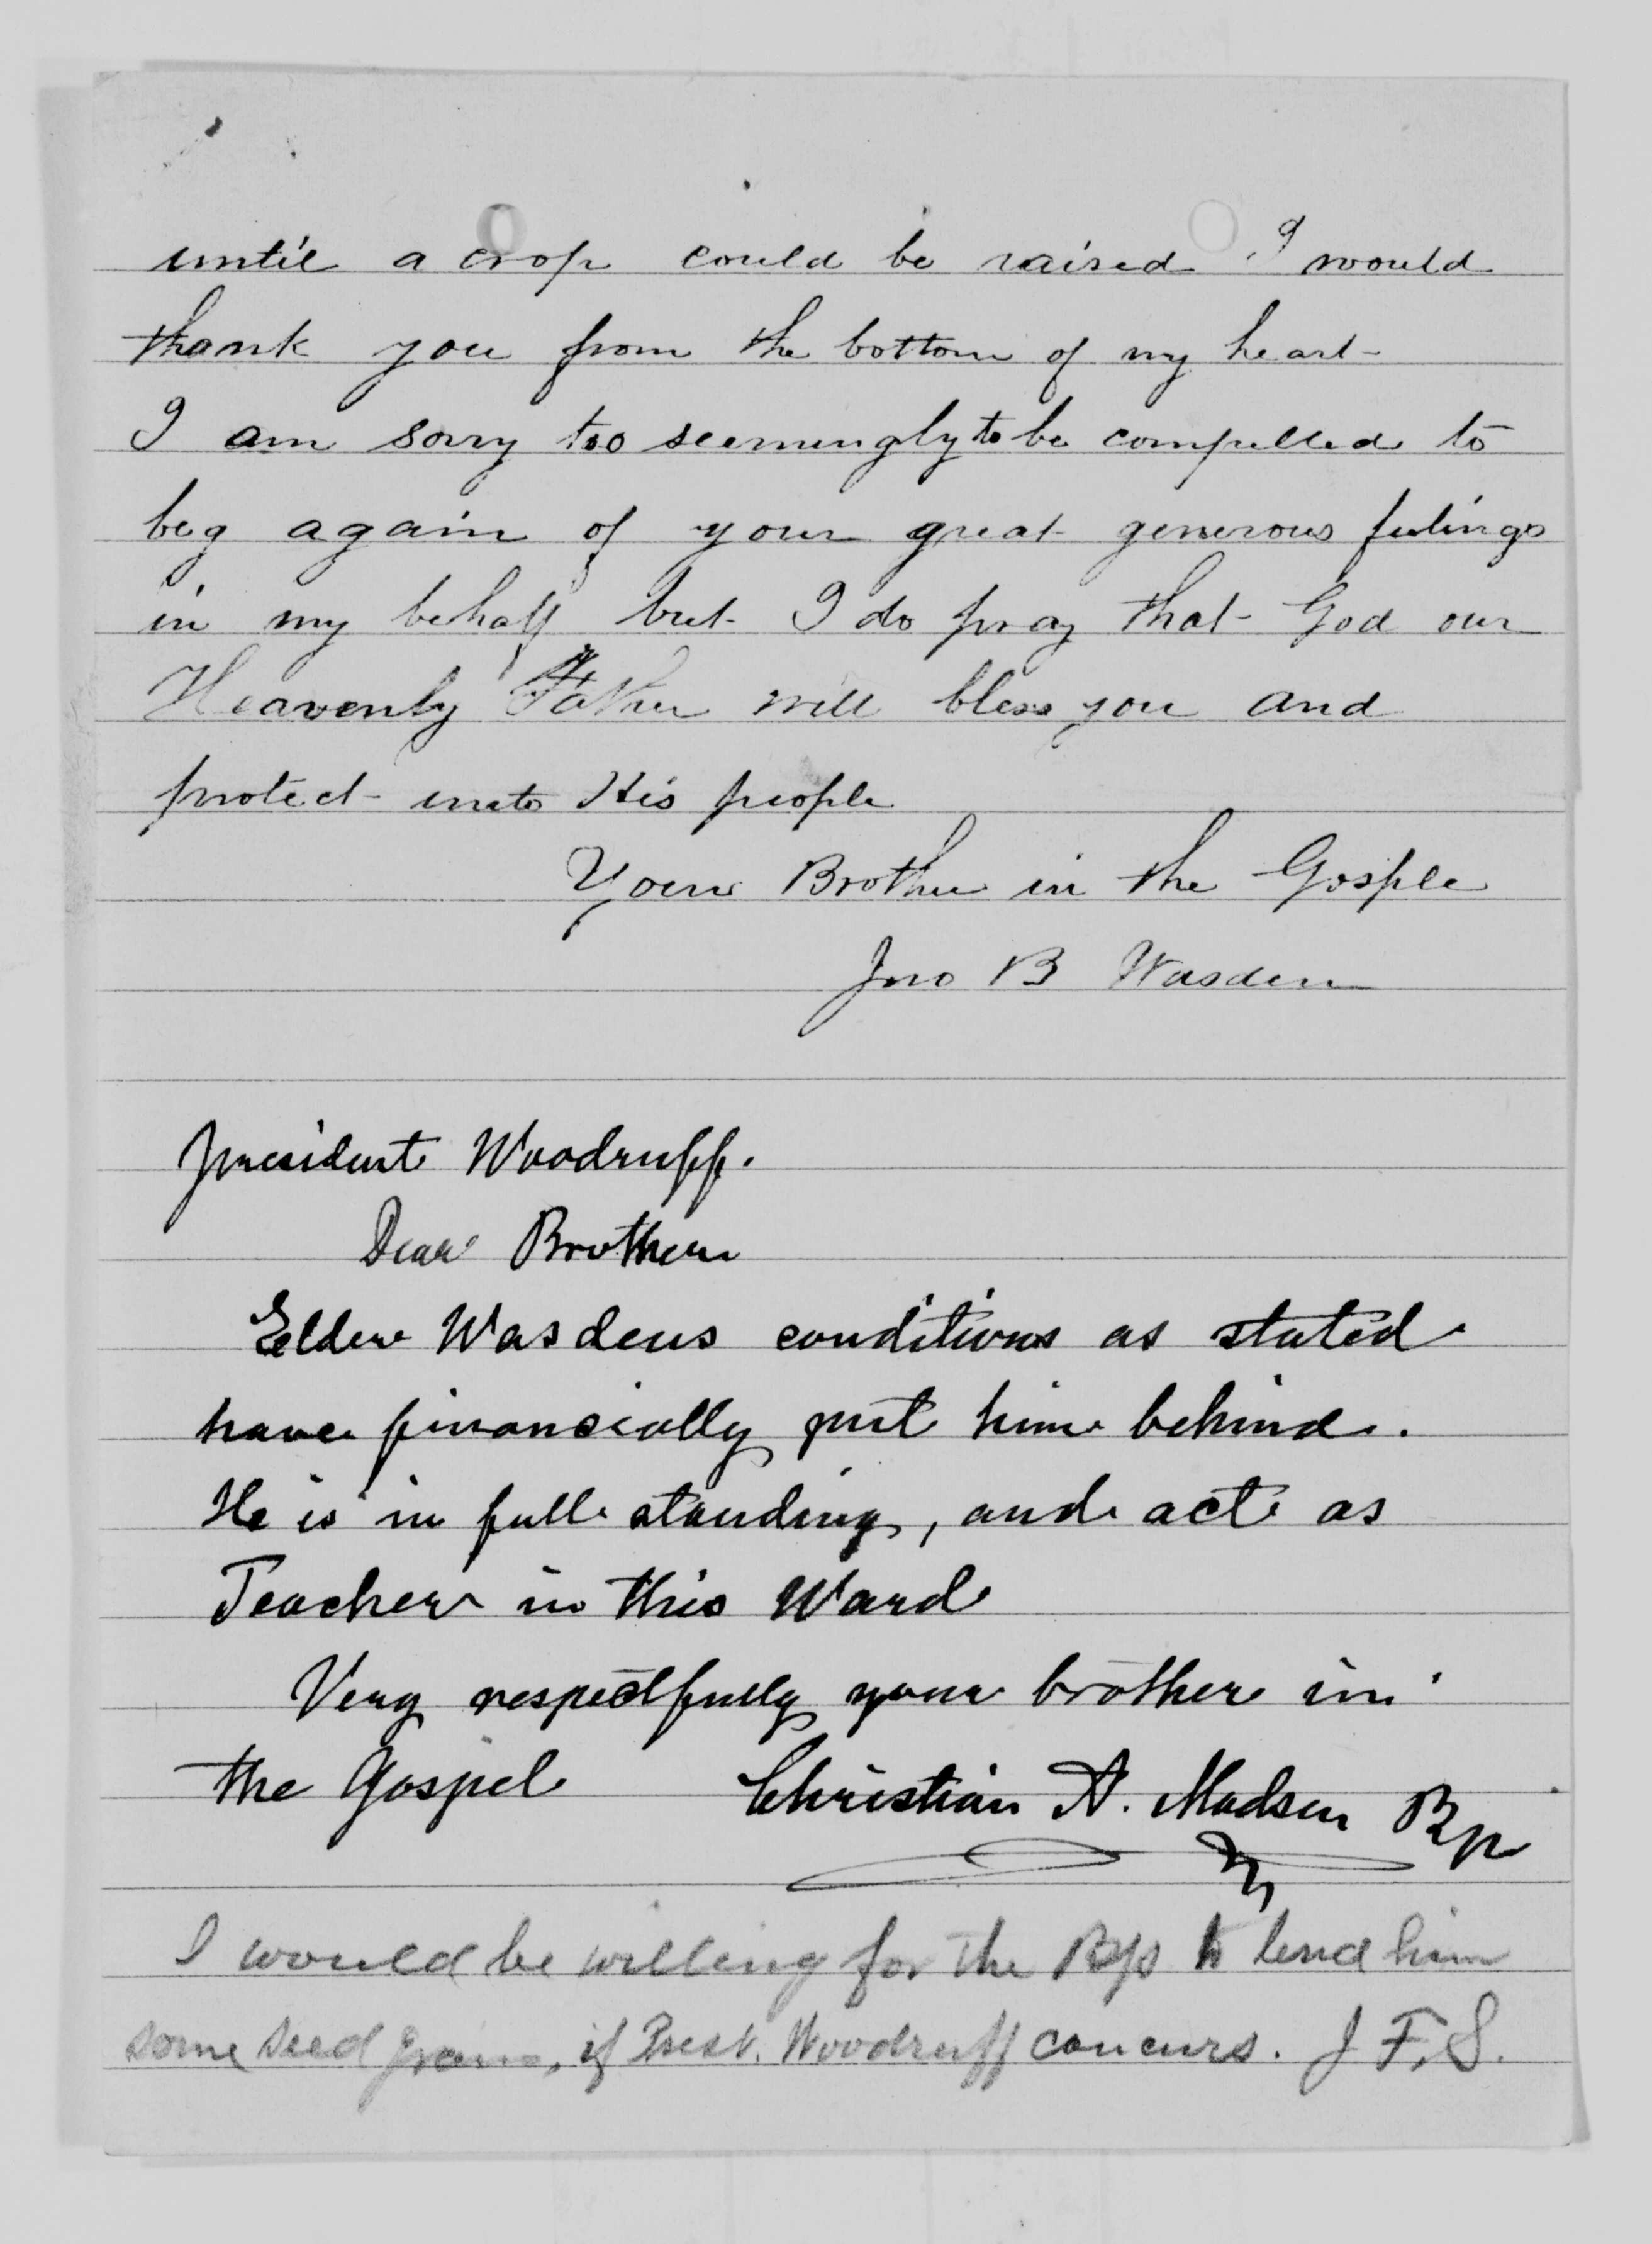 until a crop could be raised I would
thank you from the bottom of my heart
I am sorry too seemingly to be compelled to
beg again of your great generous feelings
in my behalf but I do pray that God our
Heavenly Father will bless you and
protect unto His people
Your Brother in the Gosple
Jno B Wasden
President Woodruff.
Dear Brother
Elder Wasdens conditions as stated
have financially put him behind.
He is in full standing, and act as
Teacher in this Ward
Very respectfully your brother in
the Gospel Christian A. Madsen Bp
I would be willing for the Bp to lend him
some seed grain, if Prest. Woodruff concurs. J F. S.